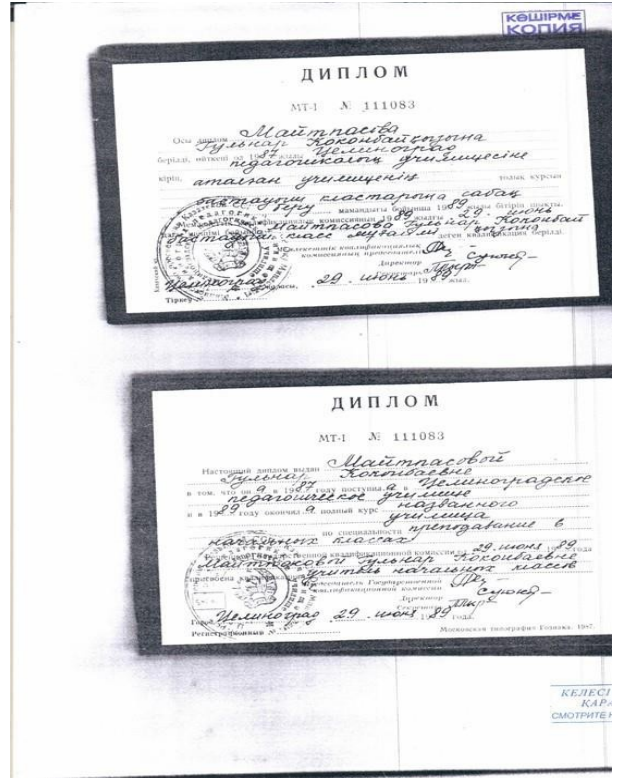 КӨШІРМЕ
КОПИЯ
ДИПЛОМ
МТ-I № 111083
Осы диплом Майтпасова
Гульнар Коконбайқызына
берілді, өйткені ол 1987 жылы Целиноград
педагогикалық училищесіне
кіріп, аталған училищенің толық курсын
бастауыш кластарына сабақ
беру мамандығы бойынша 1989 жылы бітіріп шықты.
квалификациялық комиссияның 1989 жылғы 29 июнь
Майтпасова Гульнар Коконбай
қызына
класс мұғалімі деген квалификация берілді.
Мемлекеттік квалификациялық
комиссияның председателі
Директор
Целиноград қаласы, 29 июнь 1989 жыл.
Тіркеу
ДИПЛОМ
МТ-I № 111083
Настоящий диплом выдан Майтпасовой
Гульнар Коконбаевне
в том, что он а в 1987 году поступил а в Целиноградское
педагогическое училище
и в 1989 году окончил а полный курс названного
училища
по специальности преподавание в
начальных класах
Государственной квалификационной комиссии 29 июня 1989 года
Гульнар Коконбаевне
присвоена квалификация учитель начальных класов
Председатель Государственной
квалификационной комиссии
Директор
Секретарь
Город Целиноград 29 июня 1989 года.
Регистрационный
Московская типография Гознака. 1987.
КЕЛЕСІ
ҚАРА
СМОТРИТЕ Н